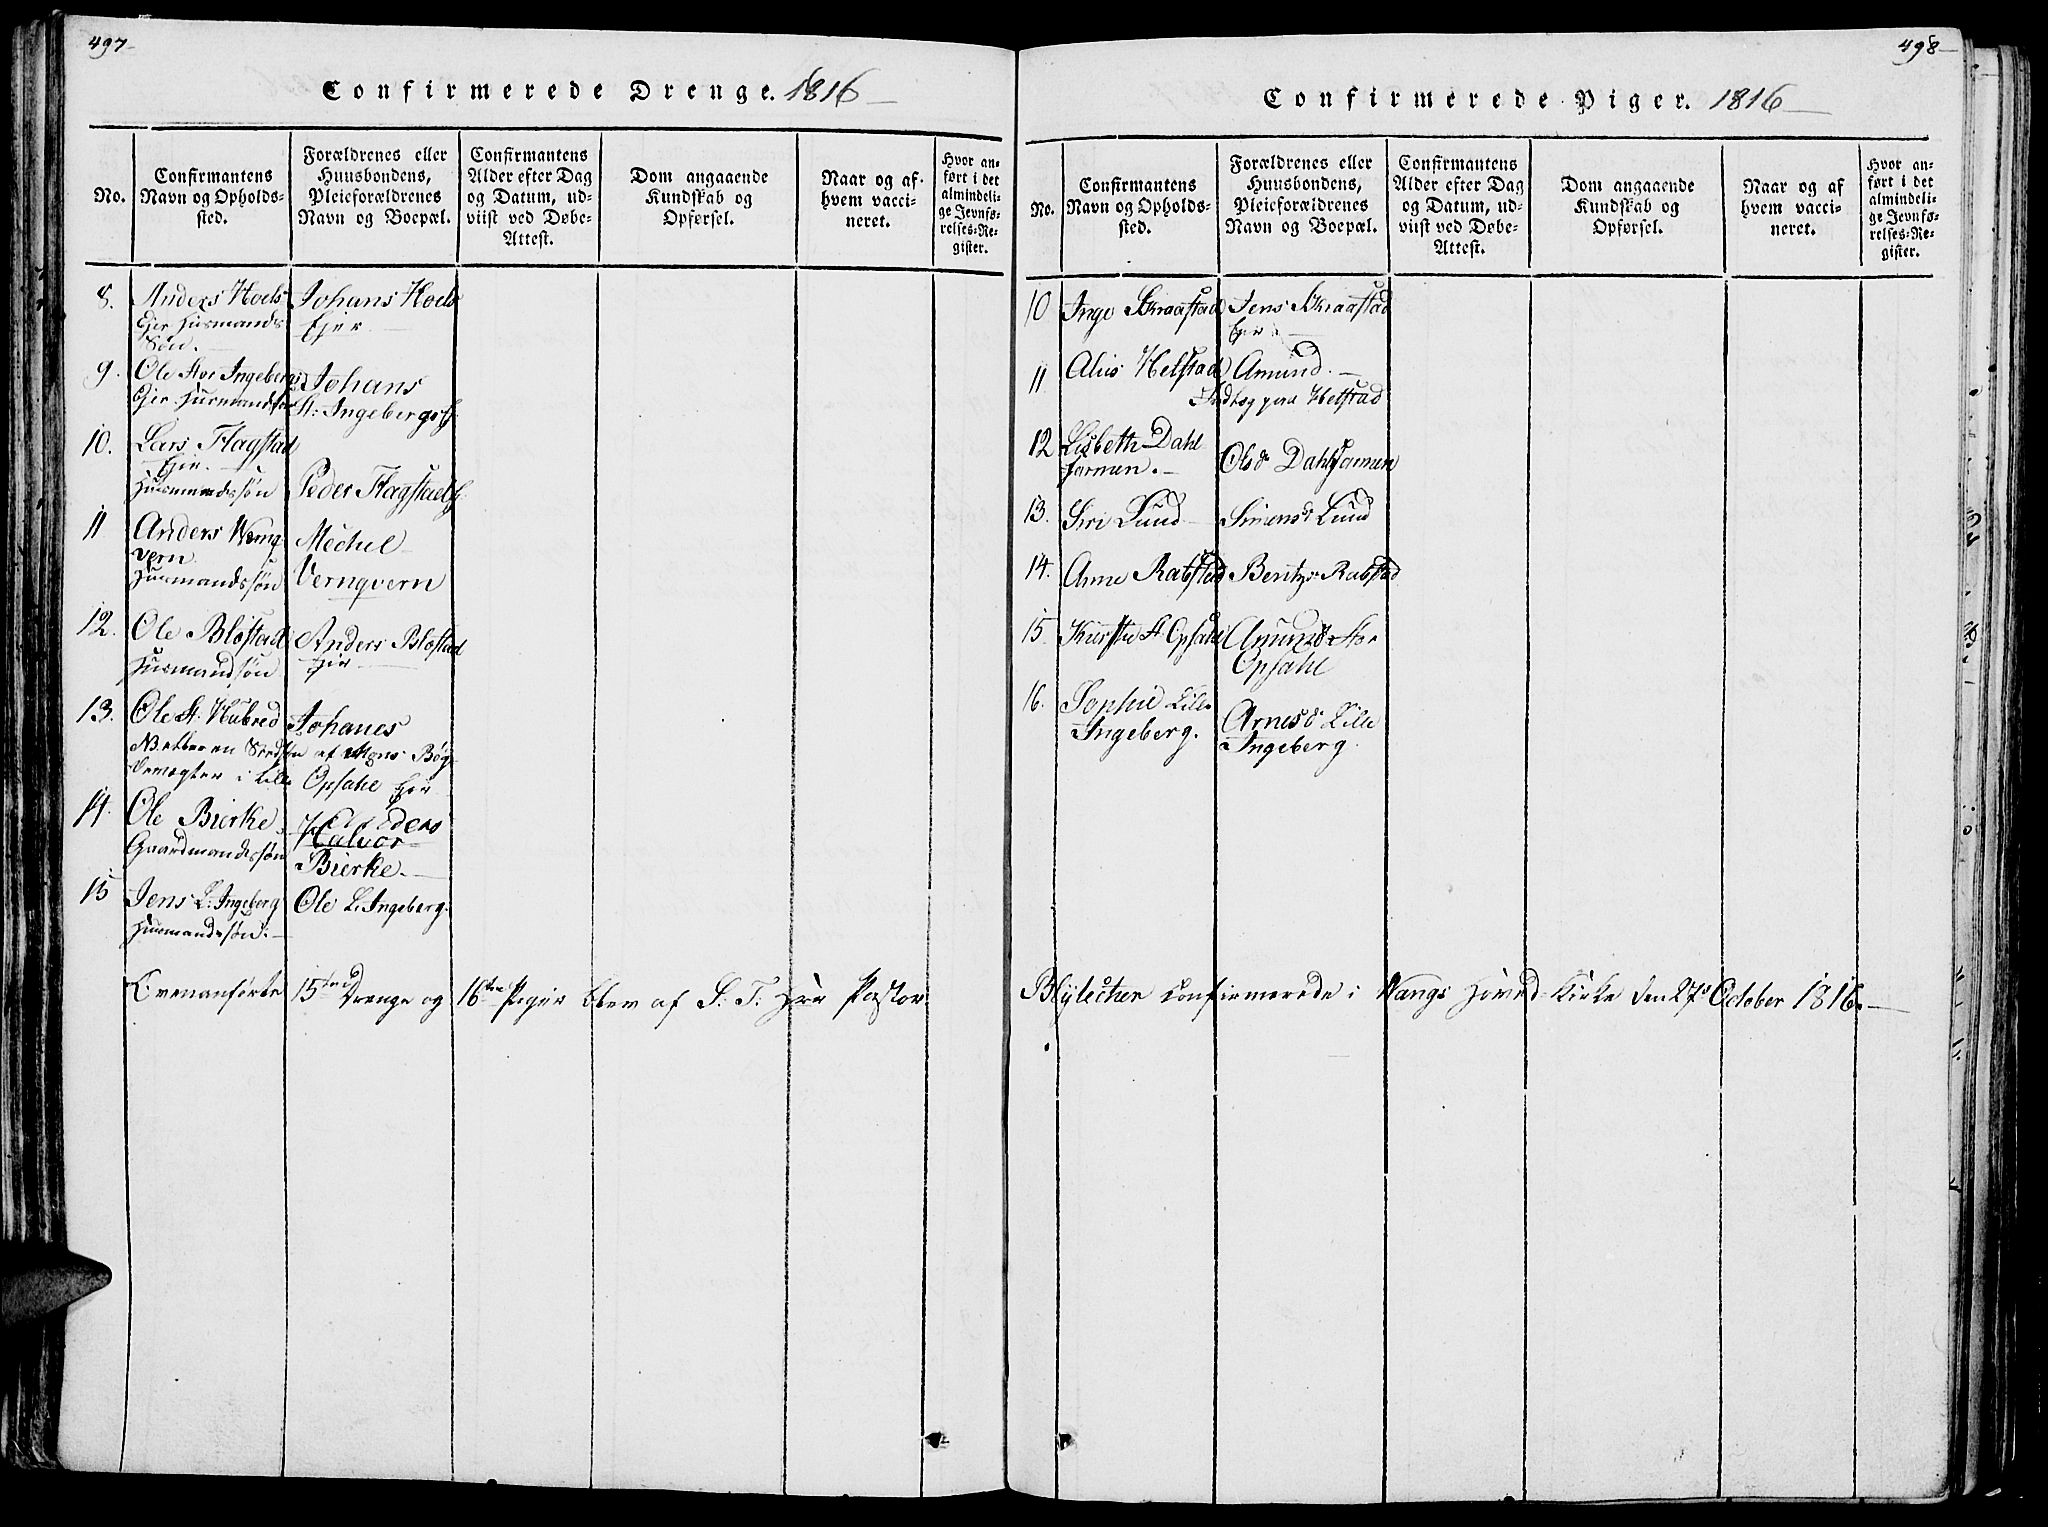 497
Confirmerede Drenge. 1816
No.
Confirmantens
Navn og Opholds-
sted.
Forældrenes eller
Huusbondens,
Pleieforældrenes
Navn og Boepæl.
Confirmantens
Alder efter Dag
og Datum, ud-
viist ved Døbe-
Attest.
Dom angaaende
Kundskab og
Opførsel.
Naar og af
hvem vacci-
neret.
Hvor an-
ført i det
almindeli-
ge Jevnfø-
relses-Re-
gister.
8. Anders Hoels Johans Hoels
Ejer Husmands Ejer
Søn.
9. Ole Stor Ingeberg Johans
Ejer Husmandssøn St: Ingebergs
10. Lars Flagstad
Ejer.
Husmandssøn Peder Flagstad
11 Anders Michel
vern
Husmandssøn Vernqvern
12. Ole Blostad Anders Blostad
Husmandsøn Ejer
13. Ole St. Hubred Johanes
NB. af Mons
i Lille Opsahl Ejer
14. Ole Bierke
Gaardmandssøn Halvor
Bierke.
15 Jens L: Ingeberg Ole L: Ingeberg.
Husmandssøn.
Ovenanførte 15 Drenge og 16 Piger blev af S: T: Herr Pastor
498
Confirmerede Piger. 1816
No.
Confirmantens
Navn og Opholds-
sted.
Forældrenes eller
Huusbondens,
Pleieforældrenes
Navn og Boepæl.
Confirmantens
Alder efter Dag
og Datum, ud-
viist ved Døbe-
Attest.
Dom angaaende
Kundskab og
Opførsel.
Naar og af
hvem vacci-
neret.
Hvor an-
ført i det
almindeli-
ge Jevnfø-
relses-Re-
gister.
10 Inge Skraastad Jens Skraastad
Ejer
11 Alis Helstad Amund.
Helstad
12 Lisbeth Dahl
farmen. Ols d Dahlfarmen
13. Siri Lund Simens d Lund
14. Anne Rabstad Bentzs Rabstad
15. Kirstie St. Opsahl Amunds Stor
Opsahl
16. Sophie Lille
Ingeberg. Arnes d Lille
Ingeberg.
Blytecher confirmerede i Vangs Hoved-Kirke den 27 October 1816.